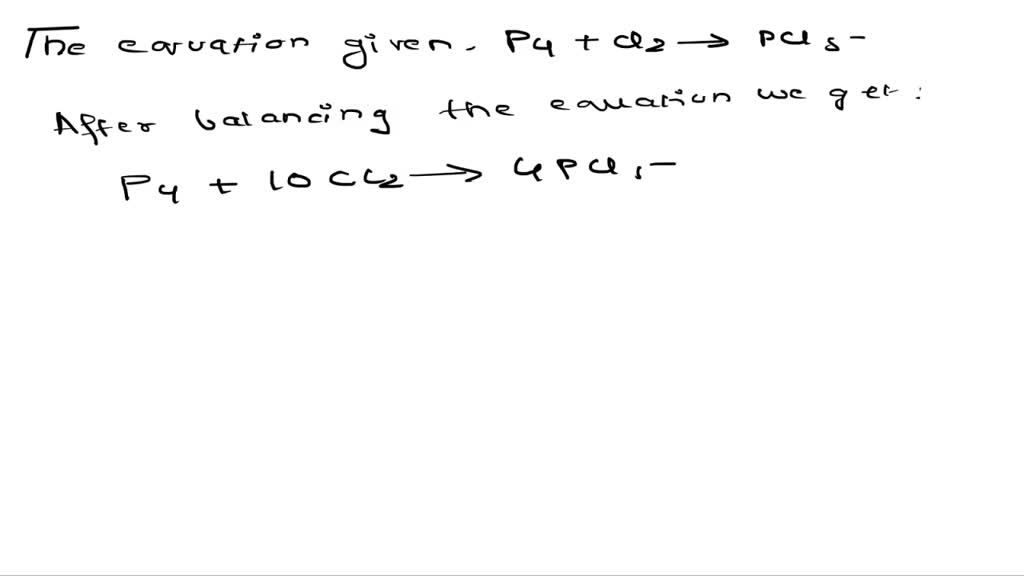 The equation given. P4 + Cl2 → PCl5 -
After balancing the equation we get :
P4 + 10 Cl2 → 4 PCl5 -